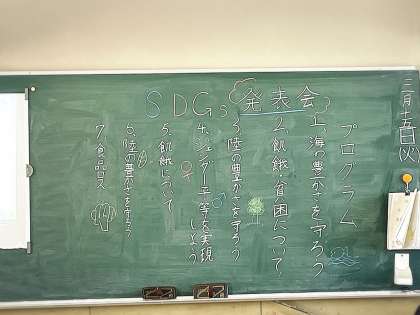 SDGs発表会
三月十五日㈫
プログラム
1.海の豊かさを守ろう
2.飢餓・貧困について
3.陸の豊かさを守ろう
4.ジェンダー平等を実現
しよう
5.飢餓について
6.陸の豊かさを守ろう
7.食品ロス